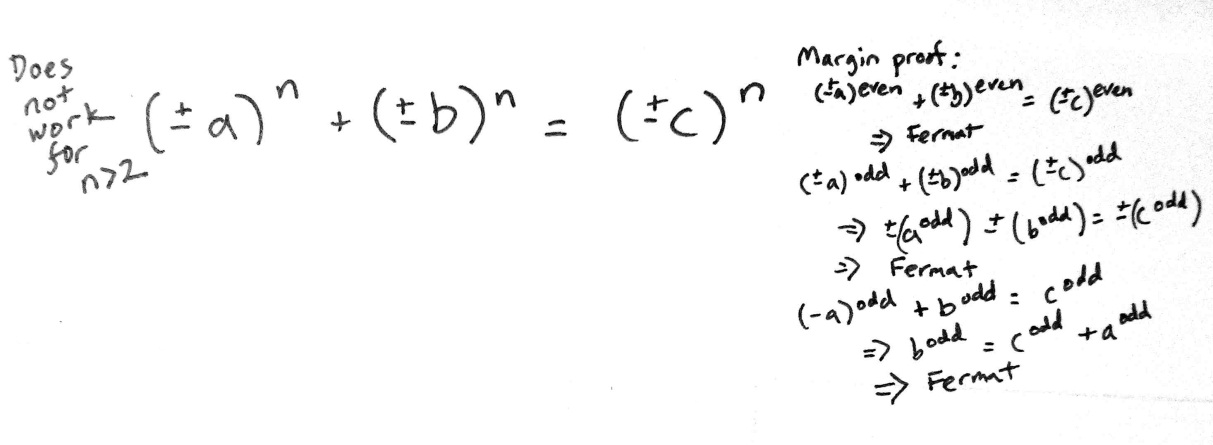 Does
not
work
for
n>2
(±a)ⁿ + (±b)ⁿ = (±c)ⁿ
Margin proof:
(±a)^even + (±b)^even = (±c)^even
⇒ Fermat
(±a)^odd + (±b)^odd = (±c)^odd
⇒ ±(a^odd) ± (b^odd) = ±(c^odd)
⇒ Fermat
(-a)^odd + b^odd = c^odd
⇒ b^odd = c^odd + a^odd
⇒ Fermat